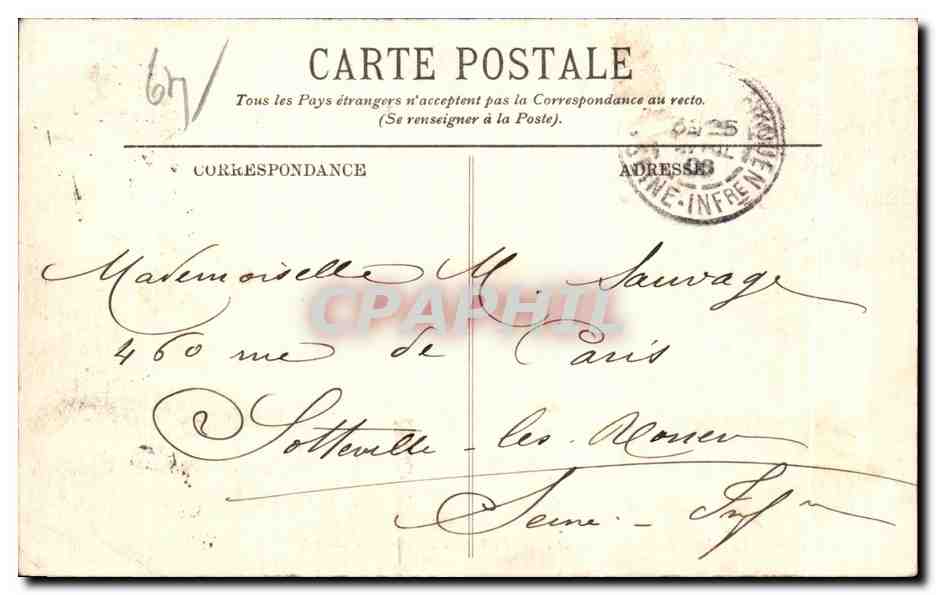 CARTE POSTALE
Tous les Pays étrangers n'acceptent pas la Correspondance au recto.
(Se renseigner à la Poste).
CORRESPONDANCE
ADRESSE
25
SEINE-INFRE
Mademoiselle M. Sauvage
CPAPHIL
460 rue de Paris
Sotteville-les-Rouen
Seine-Infre